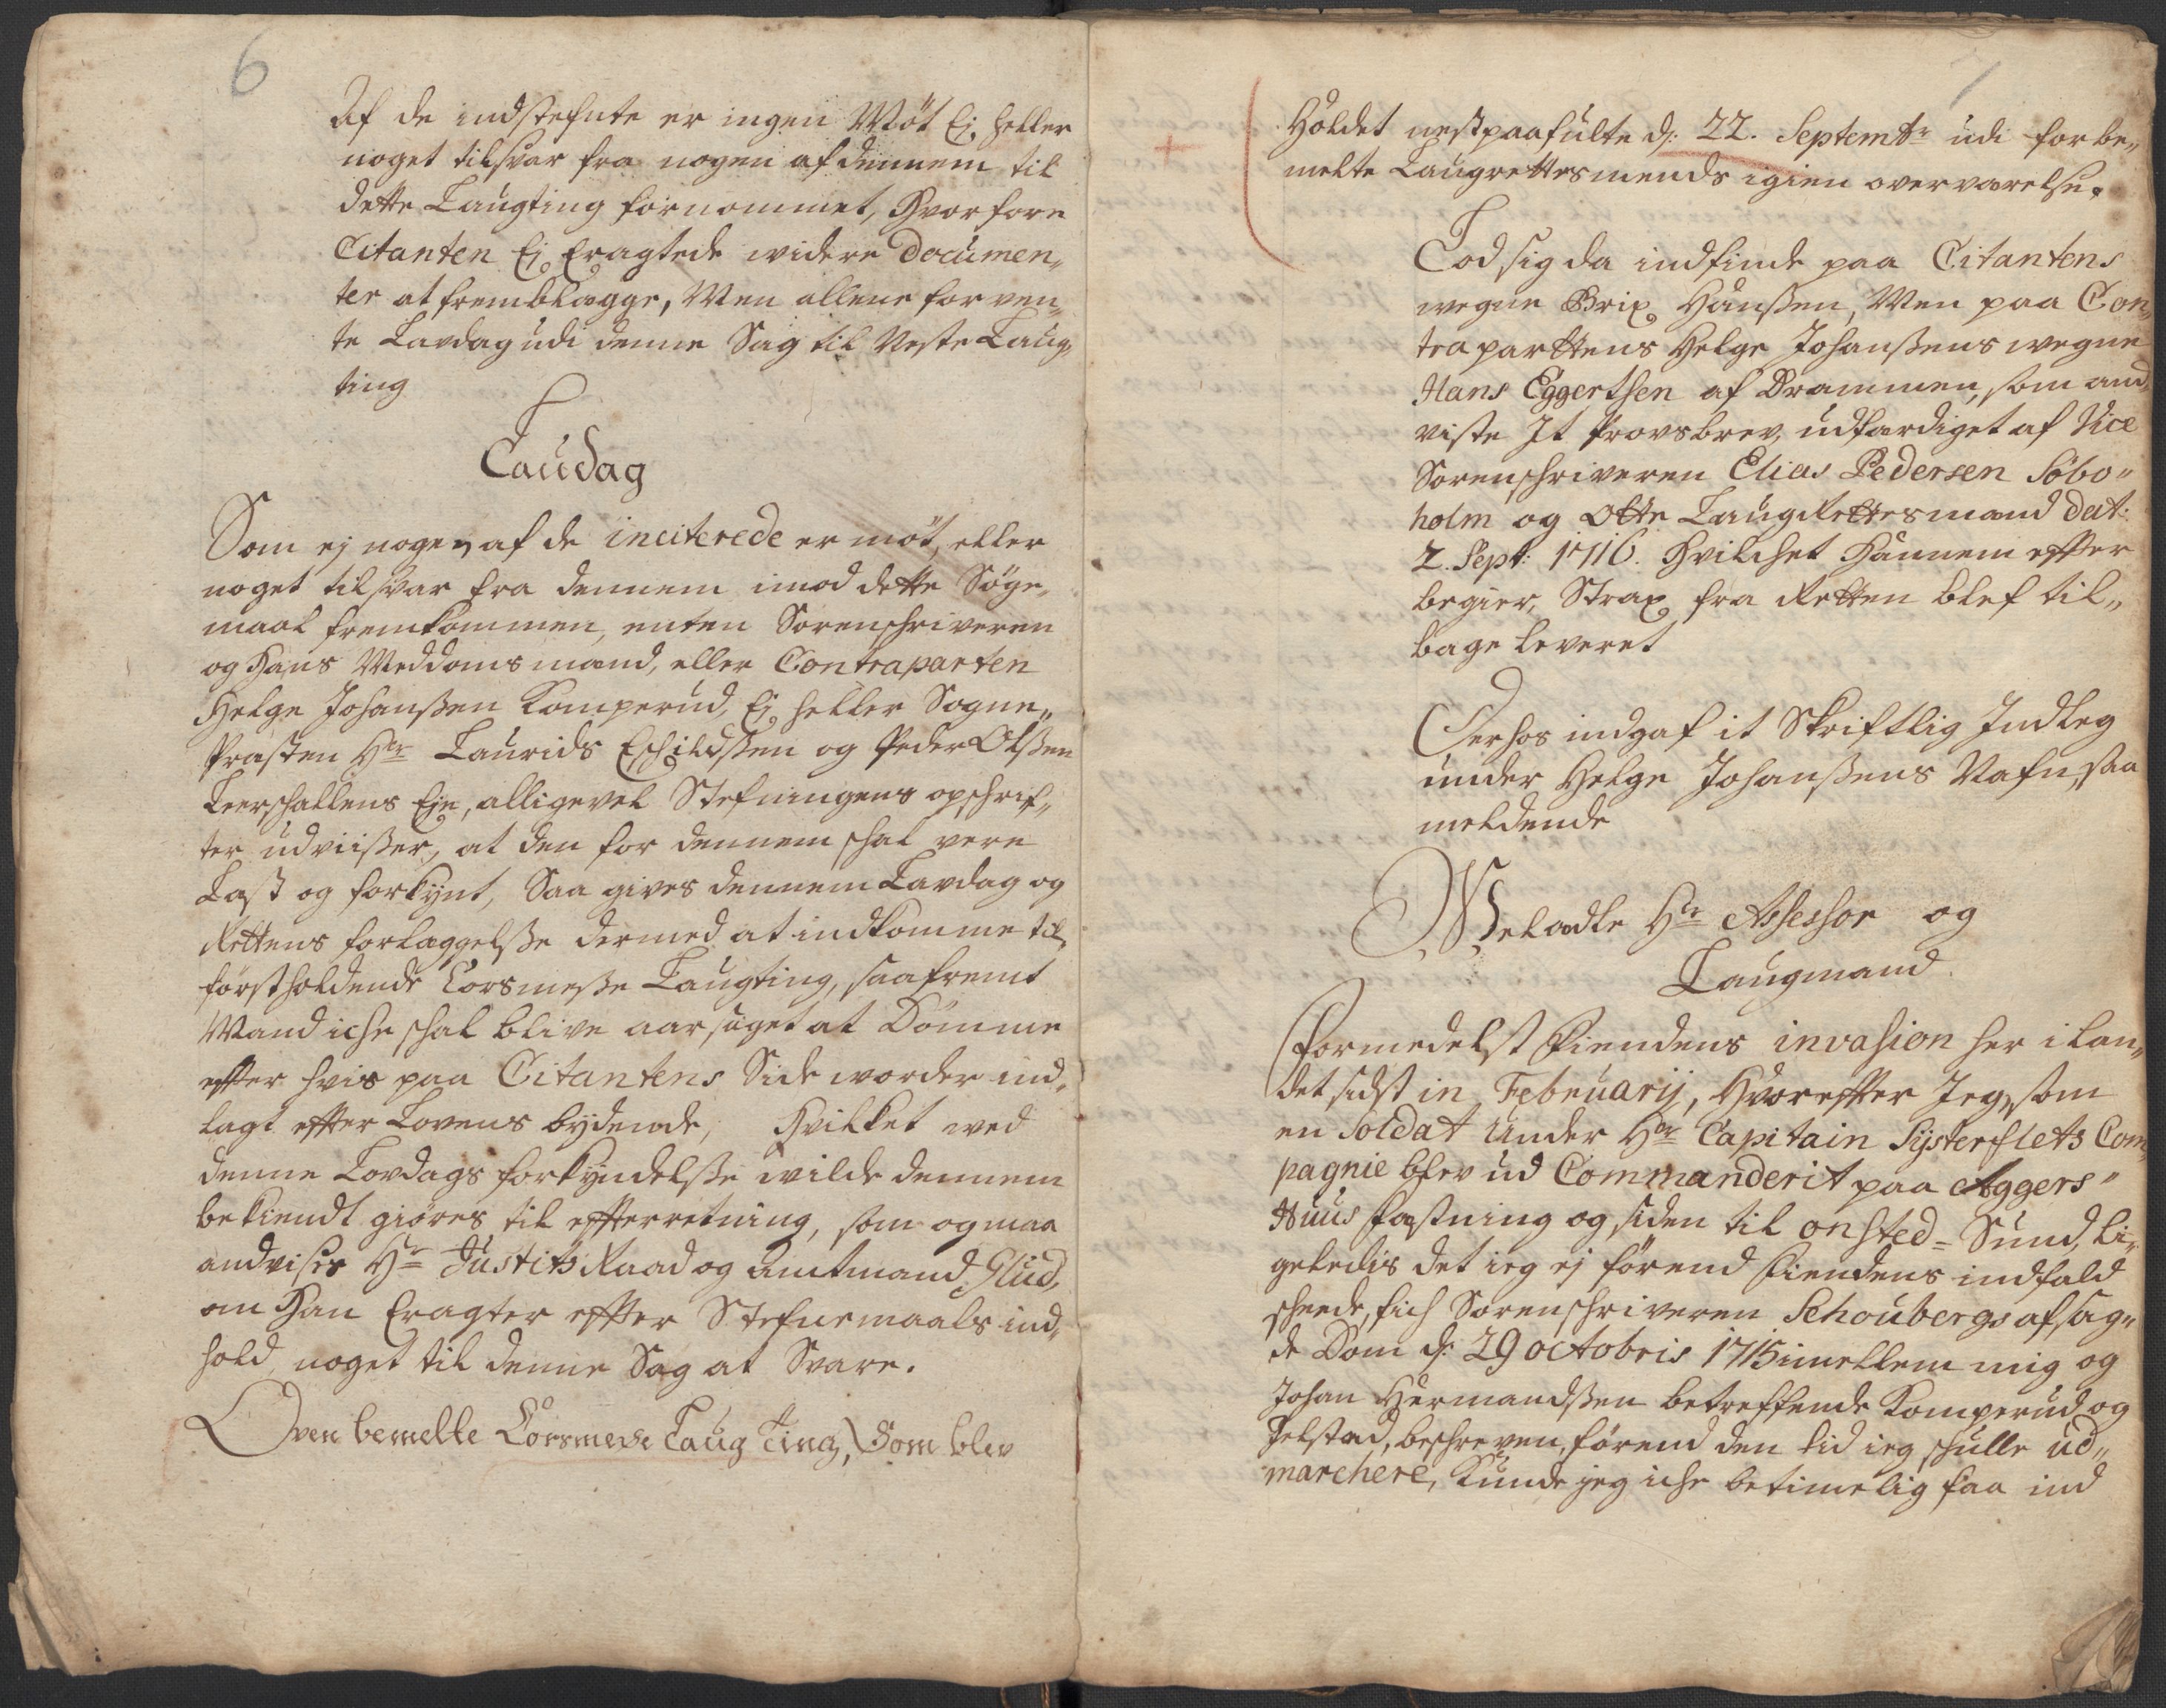 6
Af de indstefnte er ingen Møt Ej heller
noget tilsvar fra nogen af dennem til
dette Laugting fornommet, Hvorfore
Citanten Ej Eragtede widere Documen„
ter at fremblægge, Men allene forven„
te Lavdag udi denne Sag til Neste Laug„
ting
Laudag
Som ej nogen af de inciterede er møt, eller
noget tilsvar fra dennem imod dette Søge„
maal fremkommen, enten Sorenschriveren
og Hans Meddomsmand, eller Contraparten
Helge Johanßen Komperud, Ej heller Sogne„
Præsten Hr Laurids Eschildßen og Peder Olßen
Leerschallens Eje, alligevel Stefningens opschrif„
ter udviißer, at den for dennem schal vere
Læst og forkynt, Saa gives dennem Lavdag og
Rettens forlæggelße dermed at indkomme til
førstholdende Corsmeße Laugting, saafremt
Mand iche schal blive aarsaget at Dømme
effter hvis paa Citantens Side worder ind„
lagt effter Lovens bydende, Hvilket med
denne Lovdags forkyndelße wilde dennem
bekiendt giøres til effterretning, som og maa
andvises Hr Justits Raad og Amtmand Glud,
om Han Eragter effter Stefnemaals ind„
hold noget til denne Sag at Svare.
Oven bemelte Corsmese Laug Ting, Som blev
7
Holdet nestpaafulte d: 22. Septembr udi forbe„
melte Laugrettesmends igien overværelse.
Lod sig da indfinde paa Citantens
wegne Brix Hanßen, Men paa Con„
traparttens Helge Johanßens wegne
Hans Eggertsen af Drammen, som and„
viste It Provsbrev, udfærdiget af Vice
Sorenschriveren Elias Pedersen Søbo„
holm og Otte LaugRettesmænd Dat:
2. Sept: 1716. Hvilchet Hannem effter
begier, Strax fra Retten blef til„
bage leveret
Derhos indgaf it Skriftlig Indleg
under Helge Johanßens Nafn, saa
meldende
Weladle Hr Assessor og
Laugmand
Formedelst Fiendens invasion her i lan„
det sidst in Februarij, Hvoreffter Jeg som
en Soldat Under Hr Capitain Systerflets Com„
pagnie blev ud Commanderit paa Aggers„
Huus fæstning og siden til onsted=Sund, li„
geledis det ieg ej førend Fiendens indfald
scheede, fich Sorenschriveren Schoubergs afsag„
de Dom d: 29 octobris 1715 imellem mig og
Johan Hermandßen betreffende Komperud og
Jelstad, beschreven, førend den tid ieg schulle ud„
marchere, Kunde jeg iche betimelig faa ind